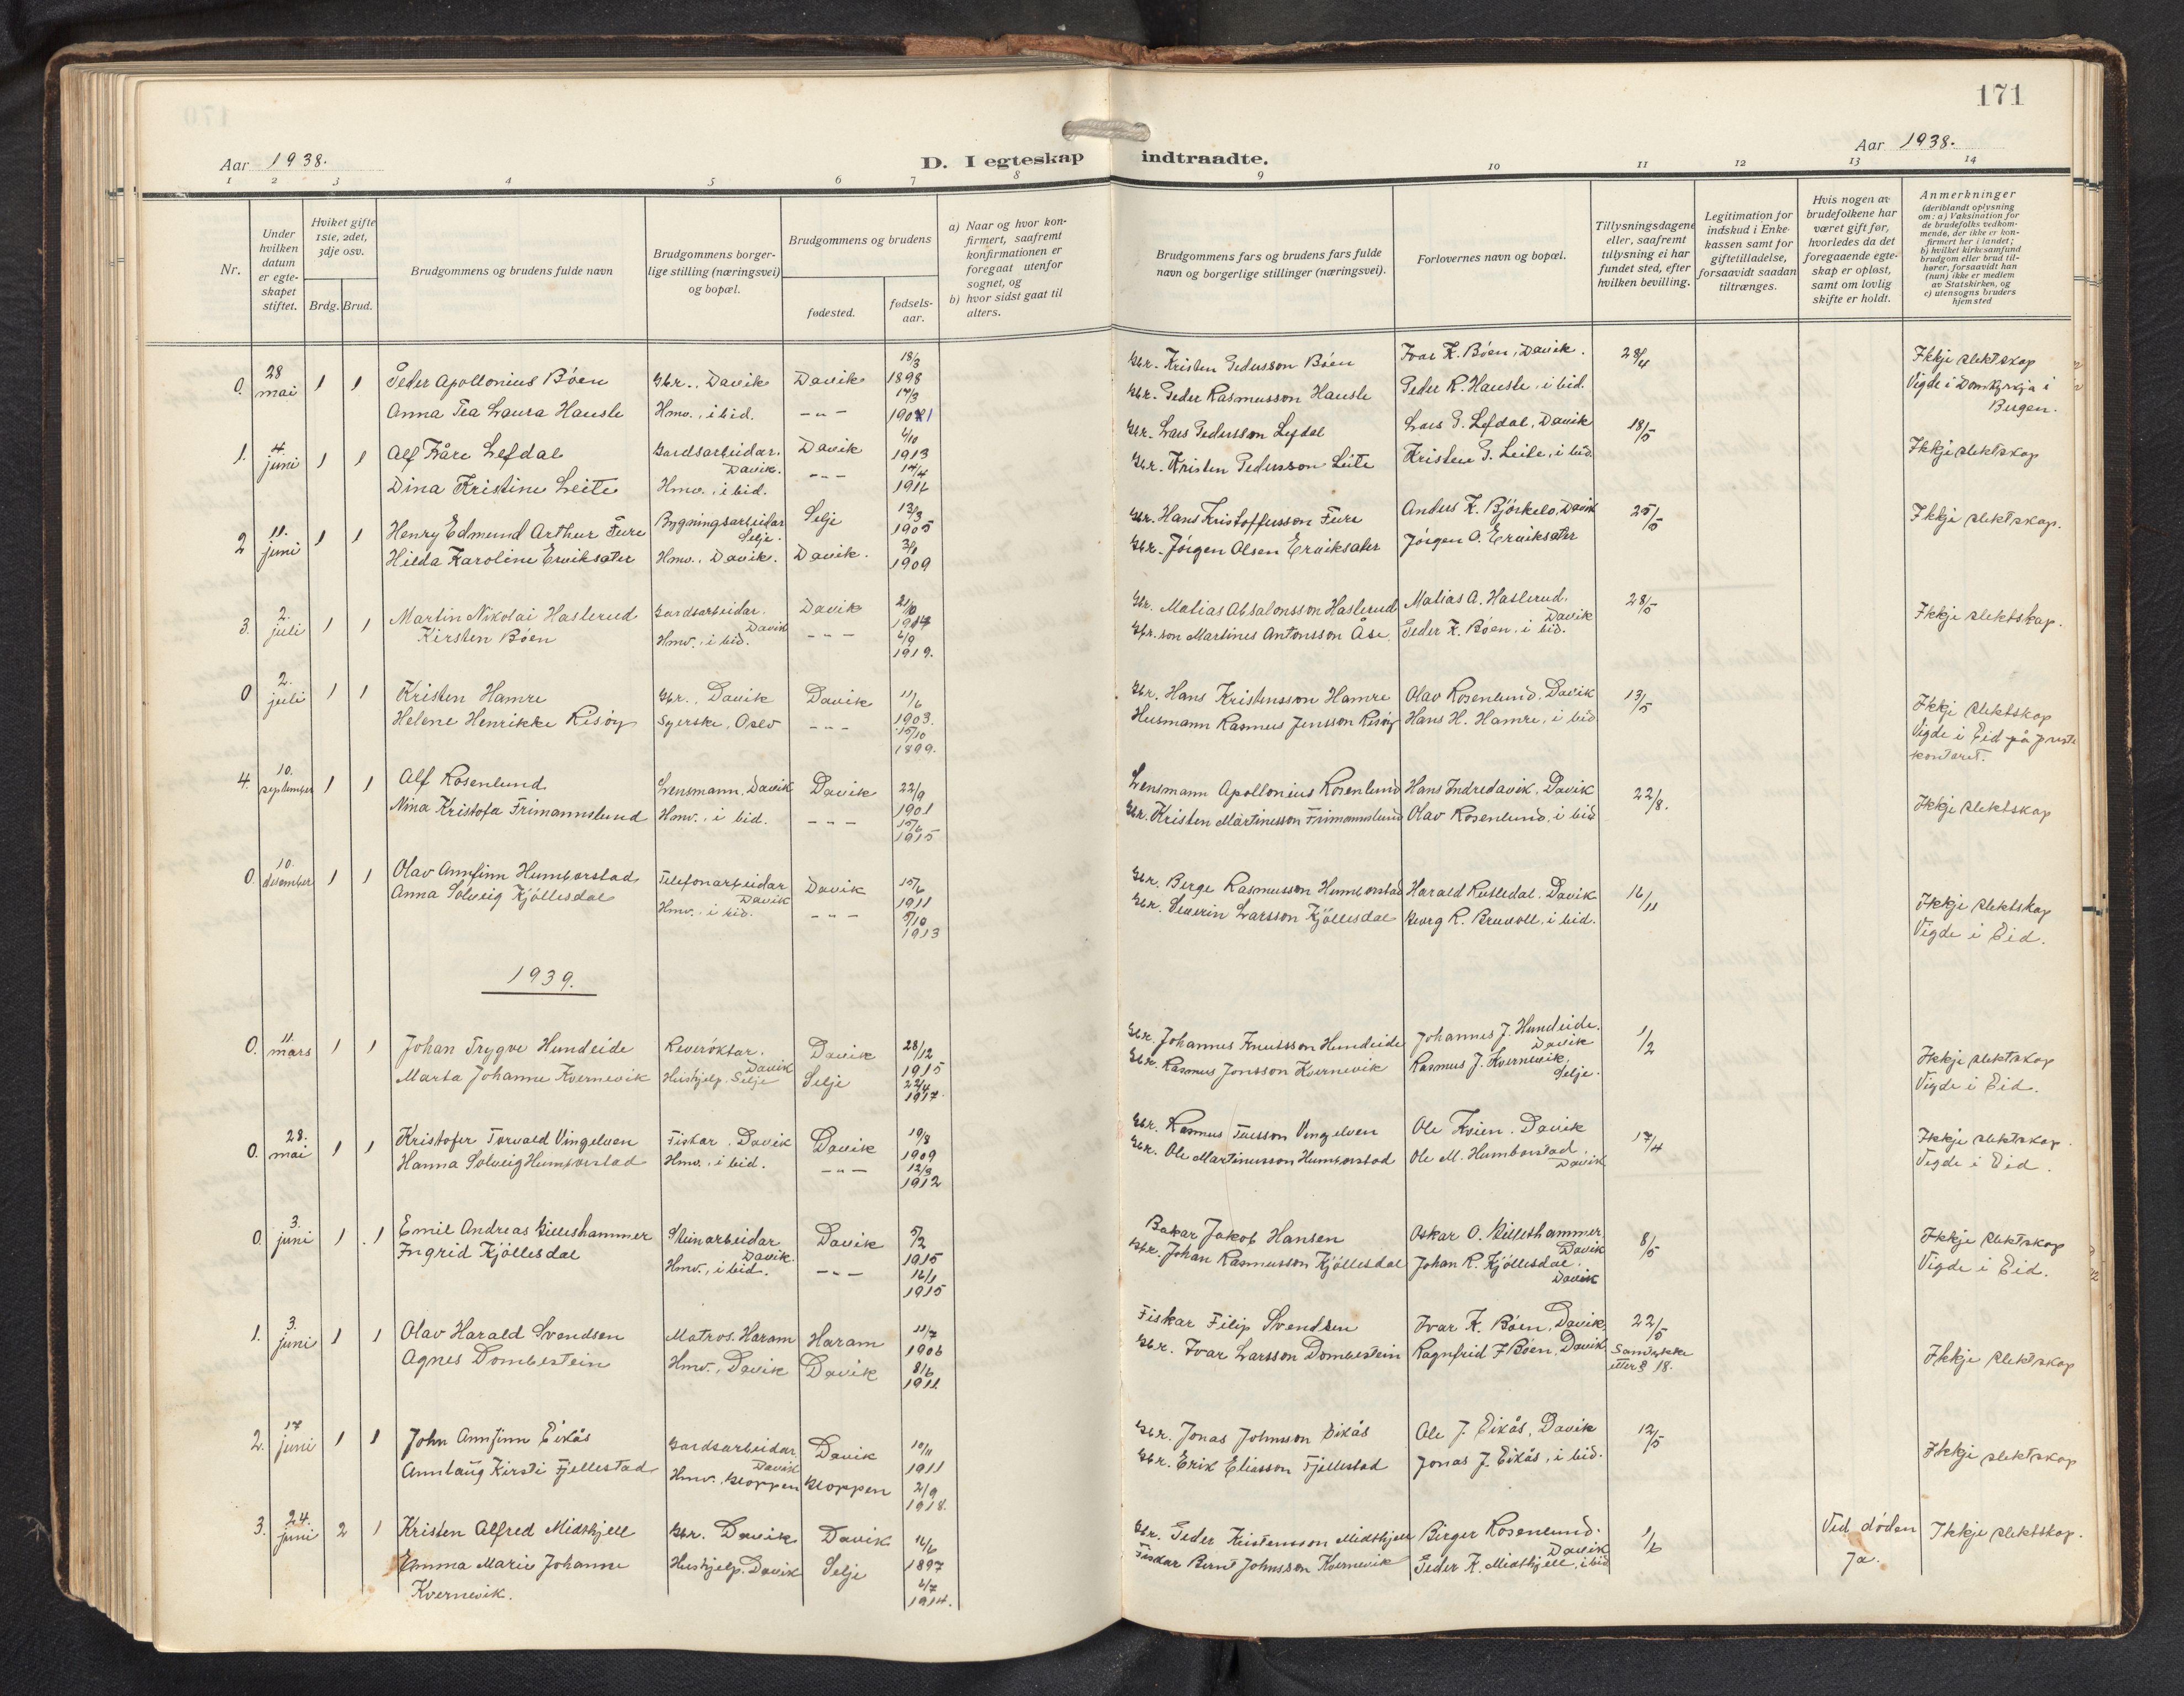 171
Aar 1938.
D. I egteskap indtraadte.
Aar 1938.
1 2 3 4 5 6 7 8 9 10 11 12 13 14
Nr.
Under hvilken datum er egteskapet stiftet.
Hvilket gifte 1ste, 2det, 3dje osv.
Brdg. Brud.
Brudgommens og brudens fulde navn
Brudgommens borgerlige stilling (næringsvei) og bopæl.
Brudgommens og brudens
fødested.
fødselsaar.
a) Naar og hvor konfirmert, saafremt konfirmationen er foregaat utenfor sognet, og
b) hvor sidst gaat til alters.
Brudgommens fars og brudens fars fulde navn og borgerlige stillinger (næringsvei).
Forlovernes navn og bopæl.
Tillysningsdagene eller, saafremt tillysning ei har fundet sted, efter hvilken bevilling.
Legitimation for indskud i Enkekassen samt for giftetilladelse, forsaavidt saadan tiltrænges.
Hvis nogen av brudefolkene har været gift før, hvorledes da det foregaaende egteskap er opløst, samt om lovlig skifte er holdt.
Anmerkninger (deriblandt oplysning om: a) Vaksination for de brudefolks vedkommende, der ikke er konfirmert her i landet; b) hvilket kirkesamfund brudgom eller brud tilhører, forsaavidt han (hun) ikke er medlem av Statskirken, og c) utensogns bruders hjemsted
0. 28 mai 1 1 Peder Apollonius Böen Gbr., Davik Davik 18/3 1898 Gbr. Kristen Pedersson Böen Ivar K. Böen, Davik. 28/4 Ikkje slektskap
Anna Tea Laura Hausle Hmv., ibid. -"- Gbr. Peder Rasmusson Hausle Peder R. Hausle, ibid. Vigde i Domkyrkja i Bergen.
1. 4. juni 1 1 Alf Kåre Lefdal Gardsarbeidar. Davik. Davik 1913 Gbr. Lars Pedersson Lefdal Lars P. Lefdal, Davik 18/5 Ikkje slektskap
Dina Kristine Leite Hmv., ibid. -"- 14/4 Gbr. Kristen Pedersson Leite Kristen P. Leite, ibid
2 11. juni 1 1 Henry Edmund Arthur Fure Bygningsarbeidar Selje. Selje 12/3 1905 Gbr. Hans Kristoffersson Fure Anders K. Björkelo, Davik 25/5 Ikkje slektskap.
Hilda Karoline Erviksæter Hmv., Davik. Davik. 1909 Gbr. Jörgen Olsen Erviksæter Jörgen O. Erviksæter
3. 2. juli 1 1 Martin Nikolai Haslerud Gardsarbeidar. Davik Davik Gbr. Matias Absalonsson Haslerud Matias A. Haslerud. Davik 28/5 Ikkje slektskap.
Kirsten Böen Hmv., ibid. -"- 1919. Gbr. son Martines Antonsson Åse. Peder K. Böen, ibid.
0 2. juli 1 1 Kristen Hamre Gbr., Davik Davik 11/6 1903. Gbr. Hans Kristensson Hamre Olav Rosenlund, Davik 13/5 Ikkje slektskap
Helene Henrikke Risöy Syerske, Oslo -"- 15/10 1899. Husmann Rasmus Jensson Risöy Hans H. Hamre, ibid Vigde i Eid på prestekontoret.
4. 10. september 1 1 Alf Rosenlund Lensmann, Davik Davik 22/9 1901 Lensmann Apollonius Rosenlund Hans Indredavik, Davik 22/8. Ikkje slektskap
Nina Kristofa Frimannslund Hmv., ibid. -"- 15/6 1915 Gbr. Kristen Martinusson Frimannslund Olav Rosenlund, ibid
0. 10. desember 1 1 Olav Annfinn Humborstad Telefonarbeidar Davik Davik 15/6 1911 Gbr. Berge Rasmusson Humborstad Harald Rusledal, Davik 16/11 Ikkje slektskap
Anna Solveig Kjöllesdal Hmv., ibid. -"- 5/10 1913 Gbr. Severin Larsson Kjöllesdal Georg R. Bruvoll, ibid. Vigde i Eid.
1939.
0. 11. mars 1 1 Johan Trygve Hundeide Reveröktar. Davik Davik 28/12 1915 Gbr. Johannes Knutsson Hundeide Johannes J. Hundeide. Davik 1/2 Ikkje slektskap
Marta Johanne Kvernevik Hushjelp, Selje Selje 22/4 1917. Gbr. Rasmus Jonsson Kvernevik Rasmus J. Kvernevik. Selje. Vigde i Eid.
0. 28. mai 1 1 Kristofer Torvald Vingelven Fiskar, Davik Davik 19/8 1909 Gbr. Rasmus Iversson Vingelven Ole Kvien, Davik 17/4 Ikkje slektskap.
Hanna Solveig Humborstad Hmv., ibid. -"- 12/3 1912 Gbr. Ole Martinusson Humborstad Ole M. Humborstad, Davik Vigde i Eid.
0. 3. juni 1 1 Emil Andreas Gilleshammer Steinarbeidar Davik. Davik 5/2 1915 Bakar Jakob Hansen Oskar O. Gilleshammer Davik 8/5 Ikkje slektskap
Ingrid Kjöllesdal Hmv., ibid. -"- 16/1 1915 Gbr. Johan Rasmusson Kjöllesdal Johan R. Kjöllesdal. Davik Vigde i Eid.
1. 3. juni 1 1 Olav Harald Svendsen Matros. Haram Haram 11/7 1906 Fiskar Filip Svendsen Ivar K. Böen, Davik, 22/5 Ikkje slektskap
Agnes Dombestein Hmv., Davik Davik 8/6 1911. Gbr. Ivar Larsson Dombestein Ragnfrid I. Böen, Davik Samtykke etter § 18.
2. 17 juni 1 1 John Annfinn Eikås Gardsarbeidar Davik Davik 10/11 1911 Gbr. Jonas Johnsson Eikås Ole J. Eikås, Davik 12/5 Ikkje slektskap
Annlaug Kirsti Fjellestad Hmv. Gloppen Gloppen 2/9 1918. Gbr. Erik Eliasson Fjellestad Jonas J. Eikås, ibid.
3. 24. juni 2 1 Kristen Alfred Midthjell Gbr. Davik Davik 16/6 1897 Gbr. Peder Kristensson Midthjell Birger Rosenlund. Davik 1/6 Ved döden Ja. Ikkje slektskap.
Emma Marie Johanne Kvernevik. Hushjelp. Davik Selje 6/7 1914. Fiskar Bernt Johnsson Kvernevik Peder K. Midthjell, ibid